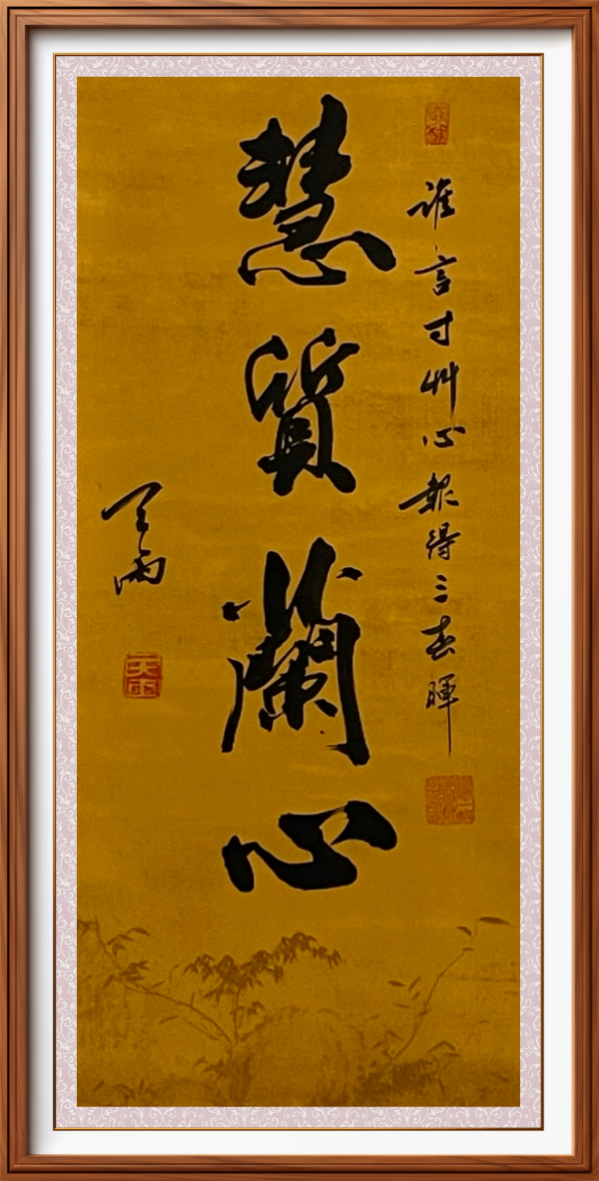 誰言寸艸心報得三春暉
慧質蘭心
天雨
天雨